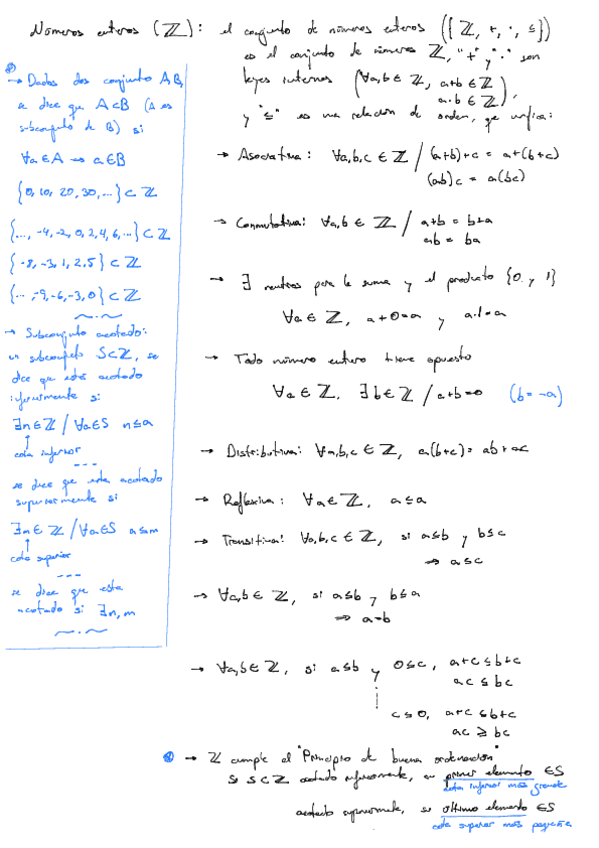 Números enteros (ℤ): el conjunto de números enteros ({ℤ, +, ·, ≤})
es el conjunto de números ℤ, "+" y "·" son
leyes internas (∀a,b ∈ ℤ, a+b ∈ ℤ
a·b ∈ ℤ),
y "≤" es una relación de orden, que verifica:
→ Asociativa: ∀a,b,c ∈ ℤ / (a+b)+c = a+(b+c)
(ab)c = a(bc)
→ Conmutativa: ∀a,b ∈ ℤ / a+b = b+a
ab = ba
→ ∃ neutros para la suma y el producto {0 y 1}
∀a ∈ ℤ, a+0=a y a·1=a
→ Todo número entero tiene opuesto
∀a ∈ ℤ, ∃b ∈ ℤ / a+b=0 (b=-a)
→ Distributiva: ∀a,b,c ∈ ℤ, a(b+c) = ab+ac
→ Reflexiva: ∀a ∈ ℤ, a≤a
→ Transitiva: ∀a,b,c ∈ ℤ, si a≤b y b≤c
⇒ a≤c
→ ∀a,b ∈ ℤ, si a≤b y b≤a
⇒ a=b
→ ∀a,b ∈ ℤ, si a≤b y 0≤c, a+c≤b+c
ac ≤ bc
c≤0, a+c≤b+c
ac ≥ bc
→ ℤ cumple el "Principio de buena ordenación"
Si S⊂ℤ acotado inferiormente, su primer elemento ∈S
cota inferior más grande
acotado superiormente, su último elemento ∈S
cota superior más pequeña
→ Dados dos conjunto A,B,
se dice que A⊂B (A es
subconjunto de B) si
∀a∈A → a∈B
{0, 10, 20, 30, ...} ⊂ ℤ
{..., -4, -2, 0, 2, 4, 6, ...} ⊂ ℤ
{-8, -3, 1, 2, 5} ⊂ ℤ
{..., -9, -6, -3, 0} ⊂ ℤ
→ Subconjunto acotado:
un subconjunto S⊂ℤ, se
dice que está acotado
inferiormente si:
∃n∈ℤ / ∀a∈S n≤a
cota inferior
se dice que esta acotado
superiormente si
∃m∈ℤ / ∀a∈S a≤m
cota superior
se dice que esta
acotado si ∃n,m